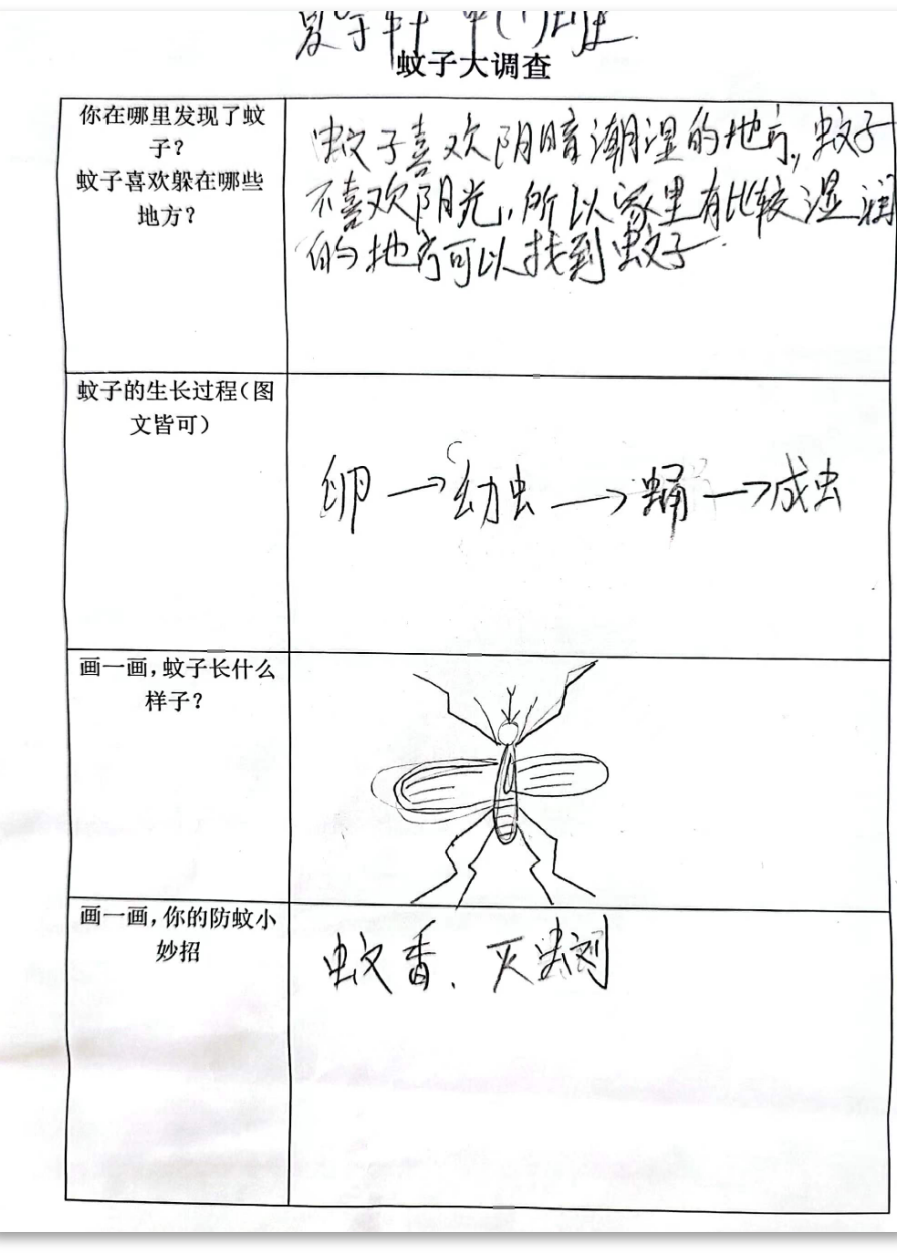 蚊子大调查
你在哪里发现了蚊
子?
蚊子喜欢躲在哪些
地方?
蚊子喜欢阴暗潮湿的地方,蚊子
不喜欢阳光,所以家里有比较湿润
的地方可以找到蚊子.
蚊子的生长过程(图
文皆可)
卵→幼虫→蛹→成虫
画一画,蚊子长什么
样子?
画一画,你的防蚊小
妙招
蚊香、灭蚊剂